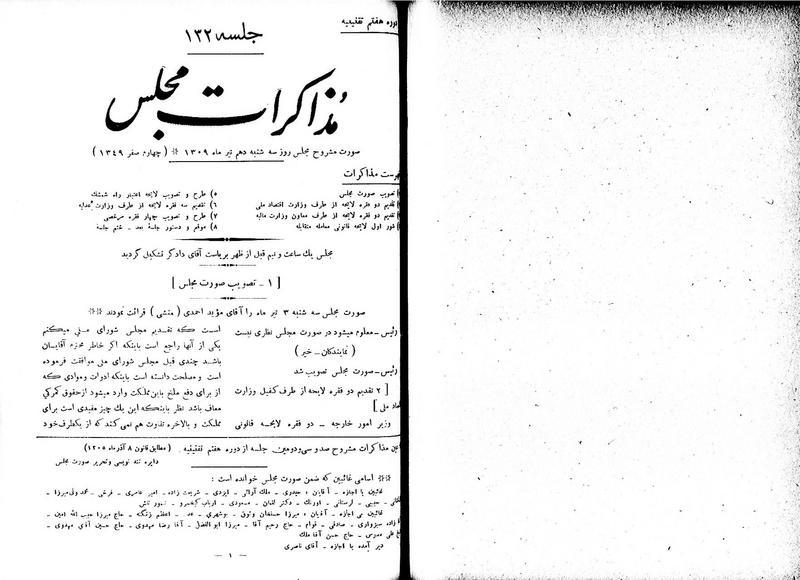 دوره هفتم تقنینیه
جلسه ۱۳۲
مذاکرات مجلس
صورت مشروح مجلس روز سه شنبه دهم تیر ماه ۱۳۰۹ * ( چهارم صفر ۱۳۴۹ )
فهرست مذاکرات
تصویب صورت مجلس
تقدیم دو فقره لایحه از طرف وزارت اقتصاد ملی
تقدیم دو فقره لایحه از طرف معاون وزارت مالیه
شور اول لایحه قانونی معامله متقابله
۵) طرح و تصویب لایحه اعتبار راه شمشك
۶) تقدیم سه فقره لایحه از طرف وزارت عدلیه
۷) طرح و تصویب چهار فقره مرخصی
۸) موقع و دستور جلسه بعد - ختم جلسه
مجلس یك ساعت و نیم قبل از ظهر بریاست آقای دادگر تشکیل گردید
[ ۱ - تصویب صورت مجلس ]
صورت مجلس سه شنبه ۳ تیر ماه را آقای مؤید احمدی ( منشی ) قرائت نمودند **
رئیس - معلوم میشود در صورت مجلس نظری نیست
( نمایندگان - خیر )
رئیس - صورت مجلس تصویب شد
[ ۲ تقدیم دو فقره لایحه از طرف کفیل وزارت
ملی ]
وزیر امور خارجه - دو فقره لایحه قانونی
است که تقدیم مجلس شورای ملی میکنم
یکی از آنها راجع است باینکه اگر خاطر محترم آقایان
باشد چندی قبل مجلس شورای ملی موافقت فرموده
است و مصلحت دانسته است باینکه ادوات و موادی که
از برای دفع ملخ باین مملکت وارد میشود از حقوق گمرکی
معاف باشد نظر باینکه این یك چیز مفیدی است برای
مملکت و بالاخره تفاوت هم نمی کند که از یکطرف خود
عین مذاکرات مشروح صد و سی و دومین جلسه از دوره هفتم تقنینیه ( مطابق قانون ۸ آذر ماه ۱۳۰۵ )
دایره تند نویسی و تحریر صورت مجلس
** اسامی غائبین که ضمن صورت مجلس خوانده است :
غائبین با اجازه - آقایان : حیدری - ملك آرائی - ایزدی - شریعت زاده - امیر عامری - فرشی - محمد ولی میرزا -
حبیبی - لرستانی - اورنك - دکتر لقمان - مسعودی - ارباب کیخسرو - تیمور تاش
غائبین بی اجازه - آقایان : میرزا حسنخان وثوق - بوشهری - اعظم زنگنه - حاج میرزا حبیب الله امین -
زاده سبزواری - صادقی - قوام - حاج رحیم آقا - میرزا ابوالفضل - آقا رضا مهدوی - حاج حسین آقای مهدوی -
علی مدرس - حاج حسن آقا ملك
دیر آمده با اجازه - آقای ناصری
- ۱ -